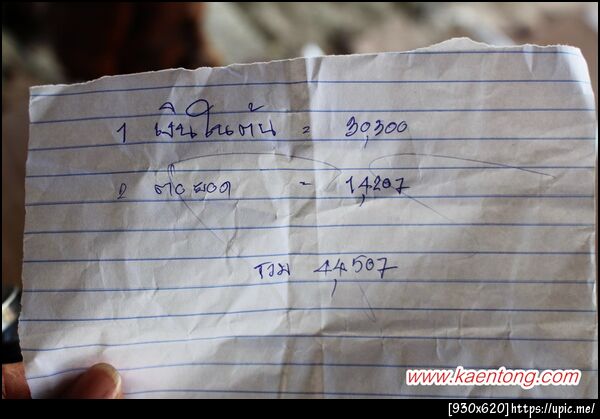 1 เงินในต้น = 30,300
2 ต่อยอด = 14,207
รวม 44,507
www.kaentong.com
[930x620]https://upic.me/